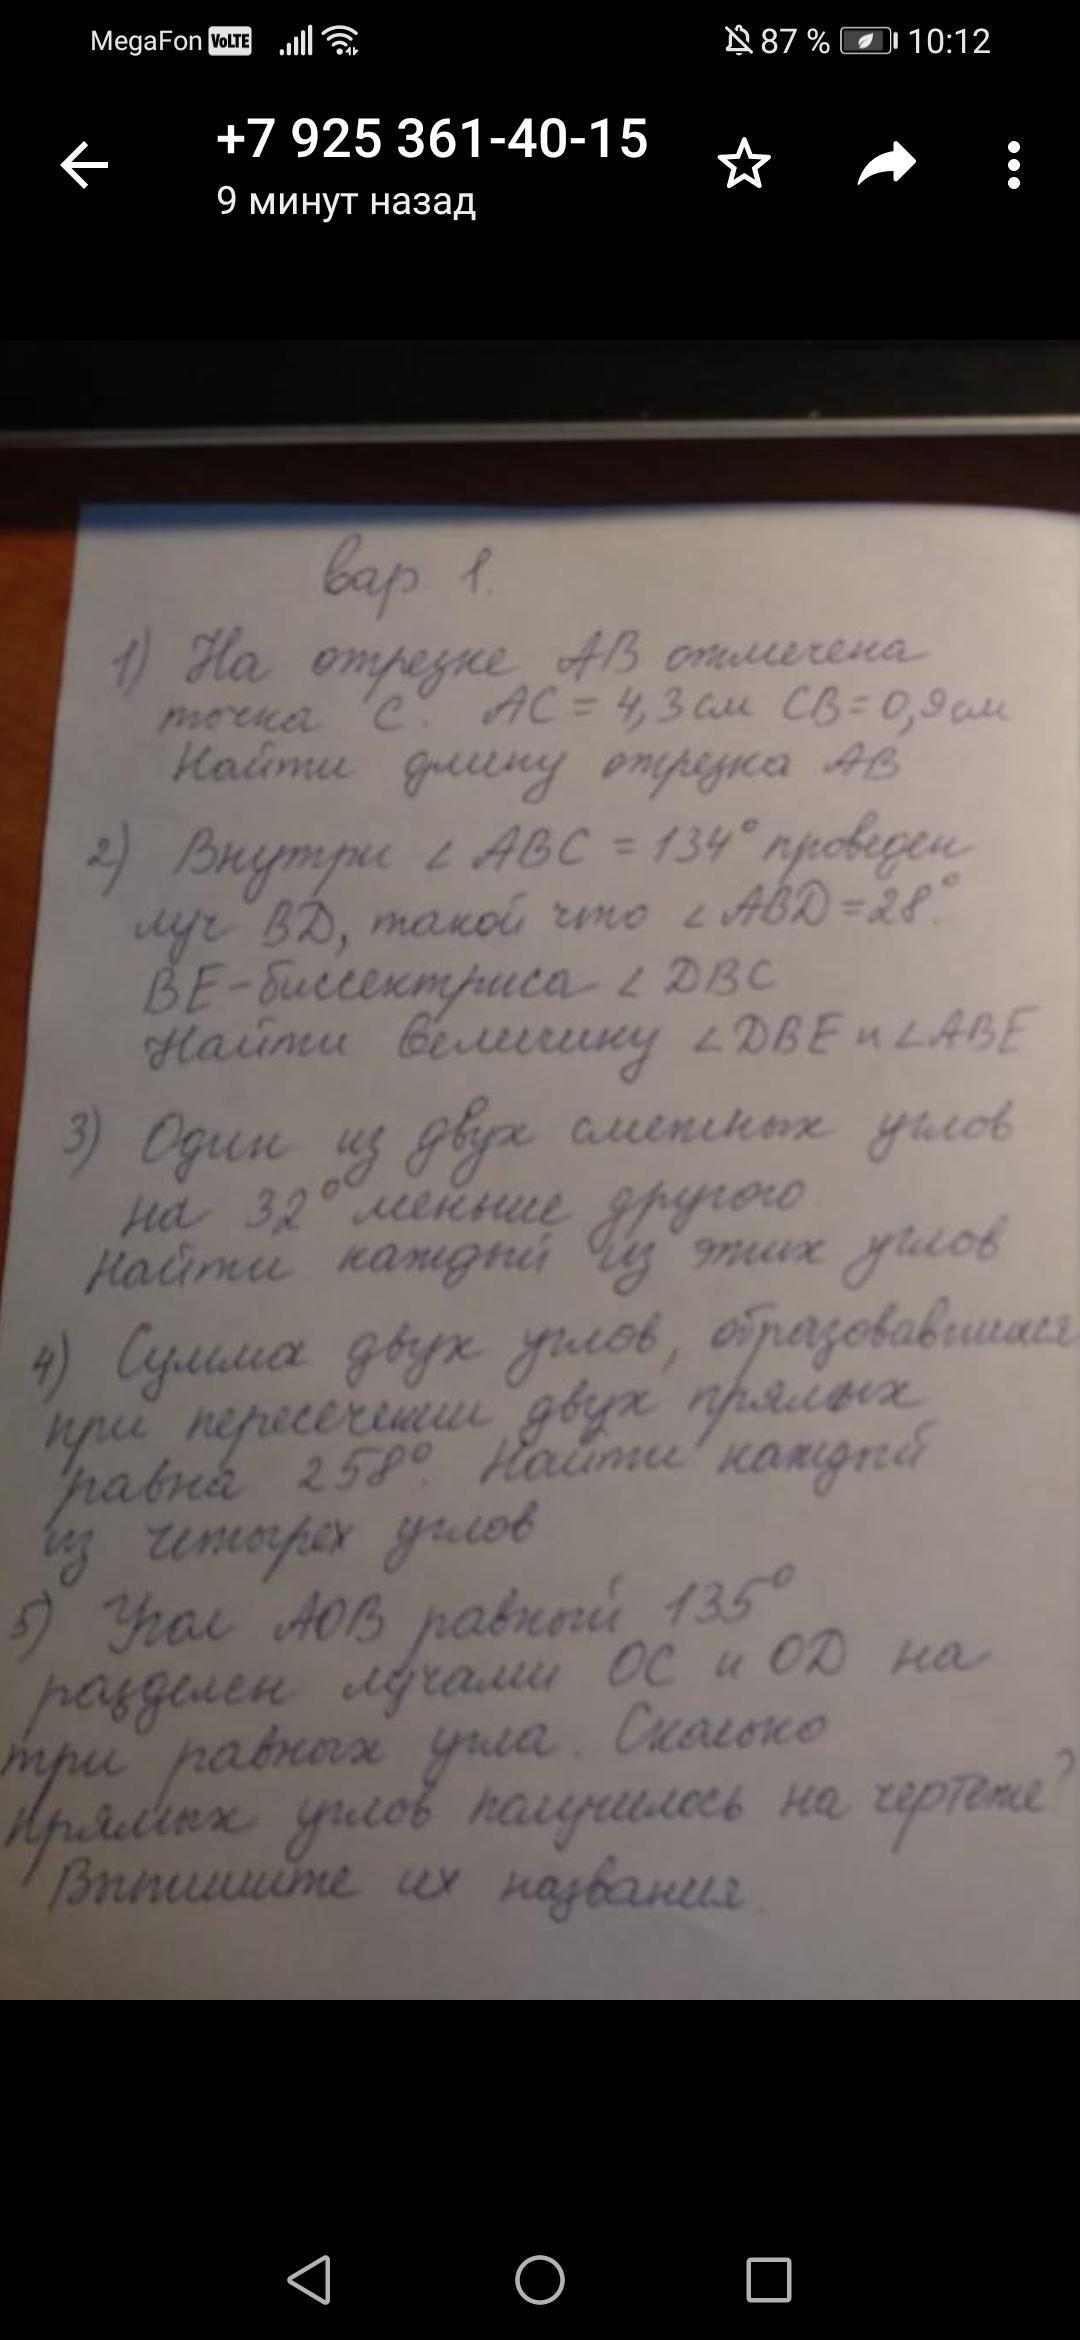 MegaFon VoLTE 87 % 10:12
+7 925 361-40-15
9 минут назад
вар 1.
1) На отрезке АВ отмечена
точка С. АС = 4,3 см СВ = 0,9 см
Найти длину отрезка АВ
2) Внутри ∠ АВС = 134° проведен
луч BD, такой что ∠ ABD = 28°.
ВЕ - биссектриса ∠ DBC
Найти величину ∠ DBE и ∠ ABE
3) Один из двух смежных углов
на 32° меньше другого.
Найти каждый из этих углов
4) Сумма двух углов, образовавшихся
при пересечении двух прямых
равна 258°. Найти каждый
из четырех углов
5) Угол АОВ равный 135°
разделен лучами ОС и OD на
три равных угла. Сколько
прямых углов получилось на чертеже?
Выпишите их названия.